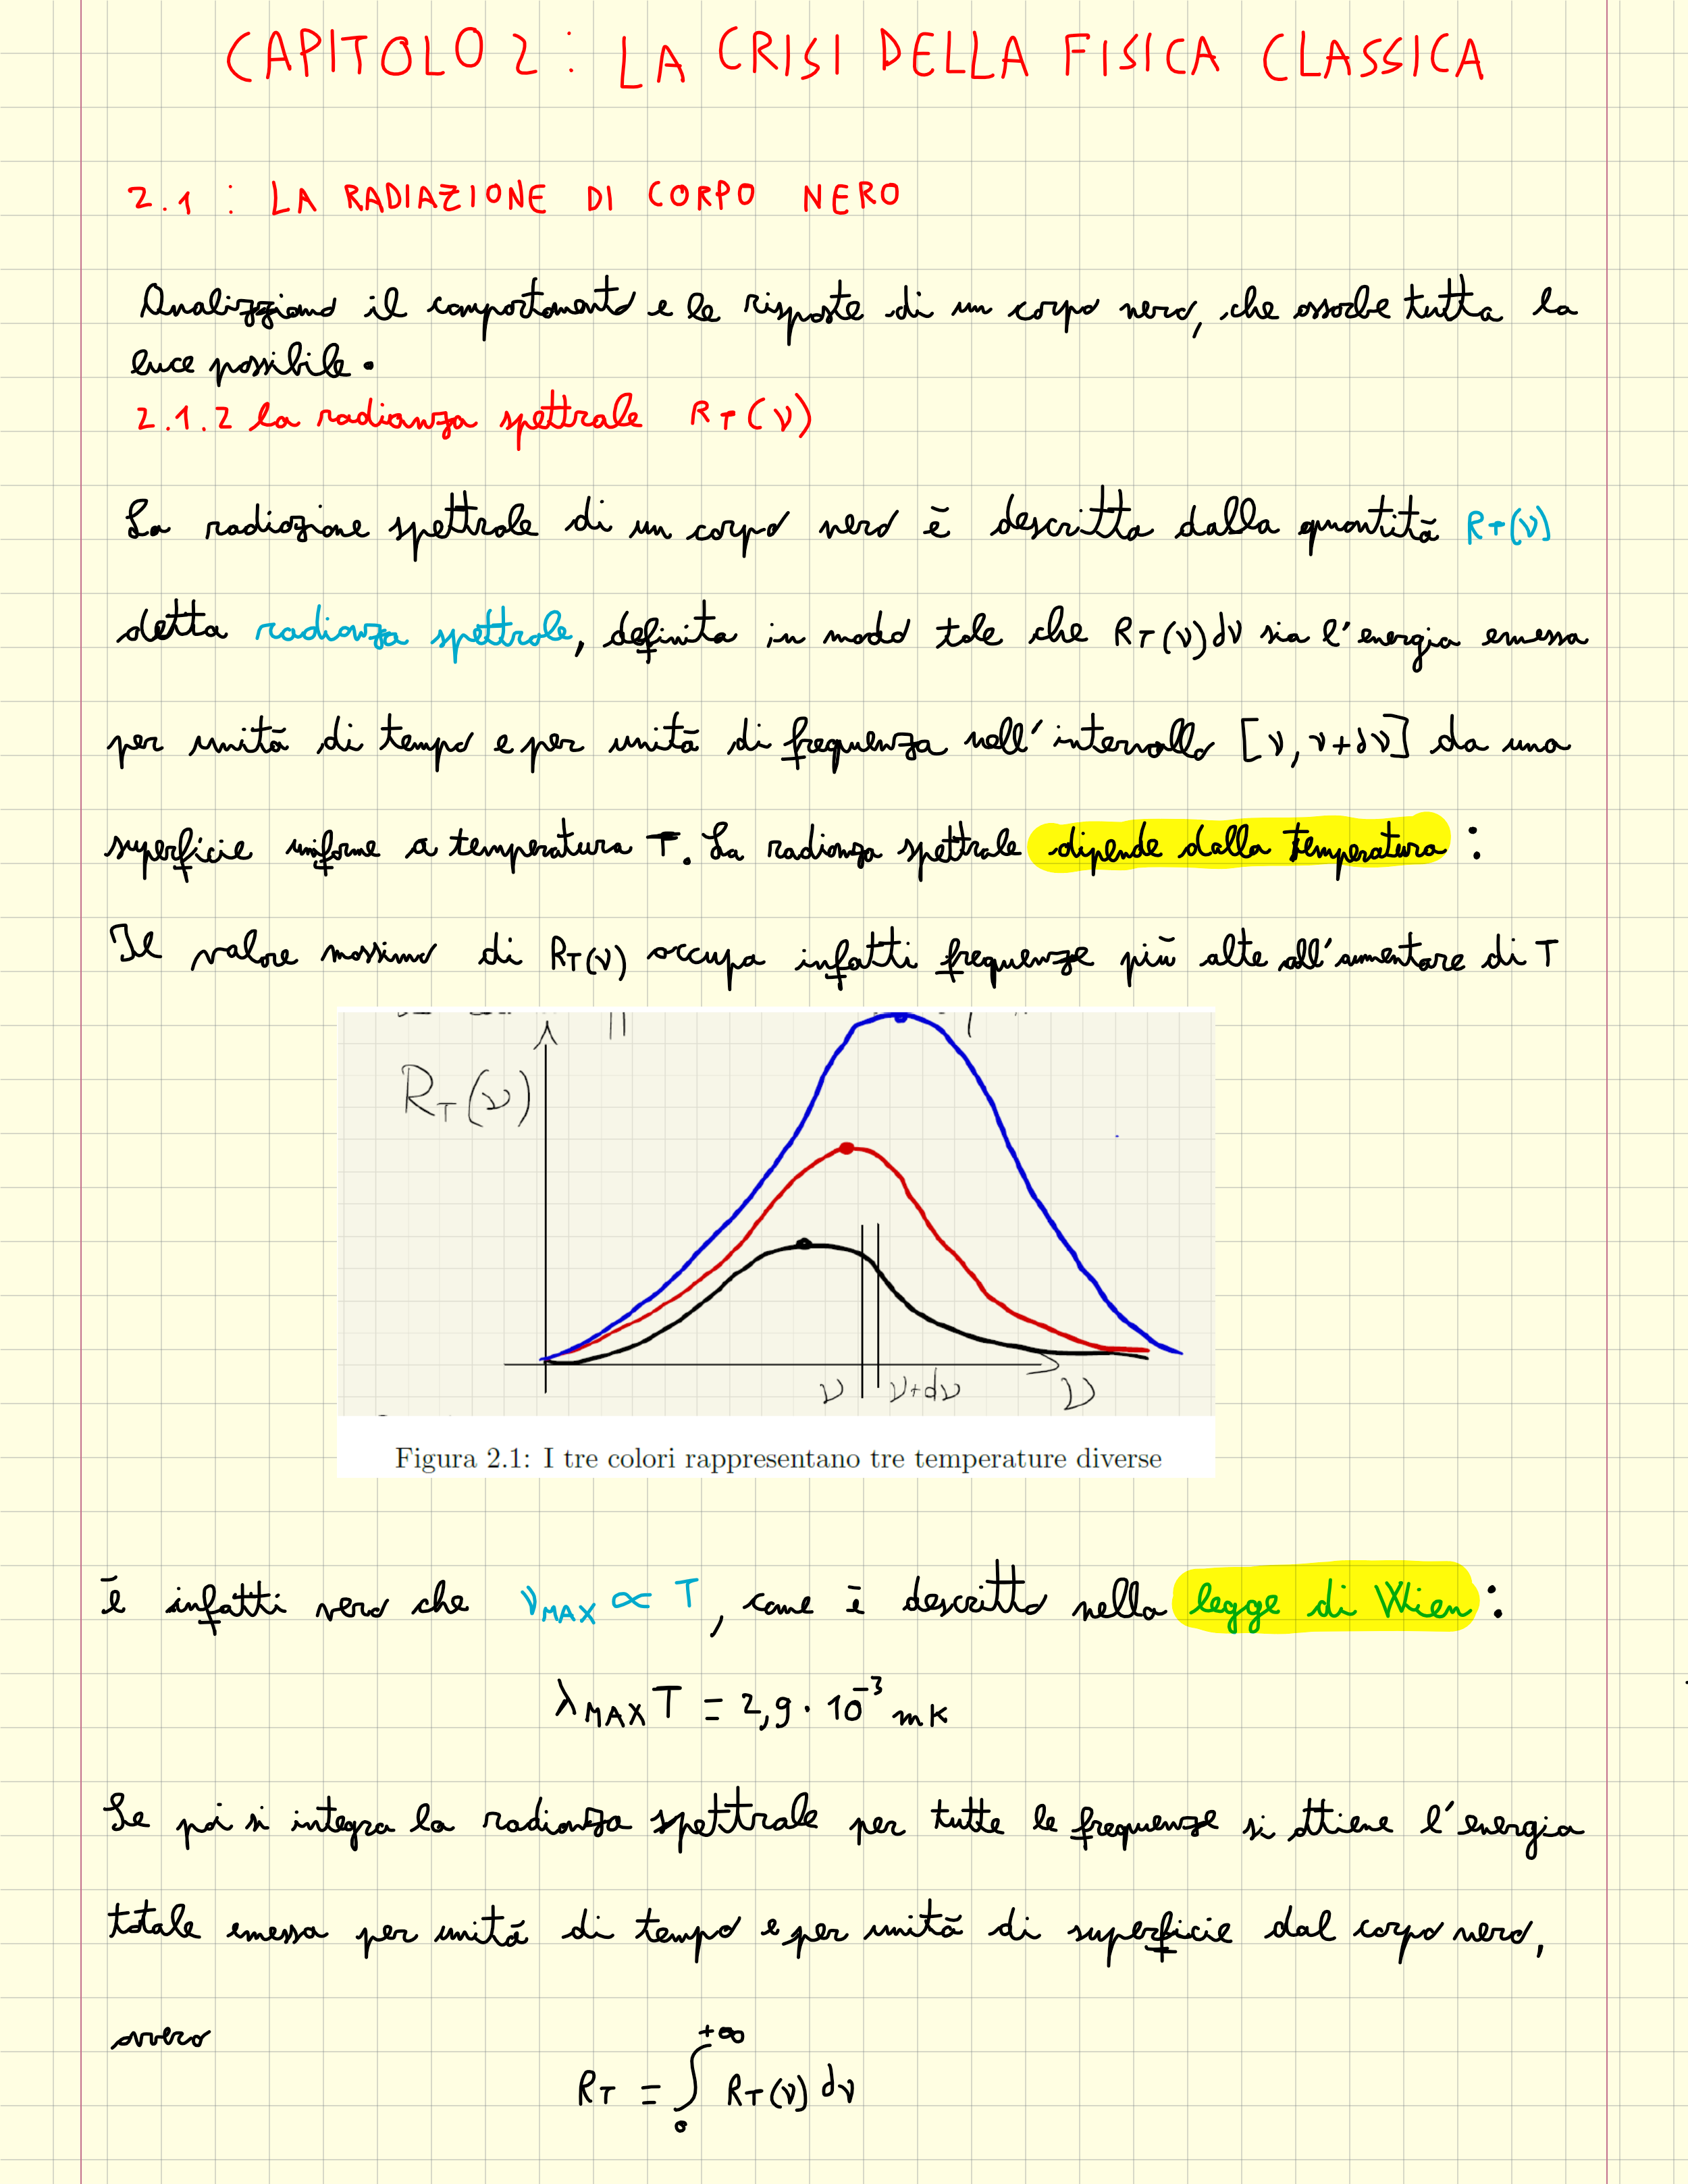 CAPITOLO 2: LA CRISI DELLA FISICA CLASSICA
2.1 : LA RADIAZIONE DI CORPO NERO
Analizziamo il comportamento e le risposte di un corpo nero, che assorbe tutta la
luce possibile.
2.1.2 la radianza spettrale R_T(ν)
La radiazione spettrale di un corpo nero è descritta dalla quantità R_T(ν)
detta radianza spettrale, definita in modo tale che R_T(ν)dν sia l'energia emessa
per unità di tempo e per unità di frequenza nell'intervallo [ν, ν+dν] da una
superficie uniforme a temperatura T. La radianza spettrale dipende dalla temperatura :
Il valore massimo di R_T(ν) occupa infatti frequenze più alte all'aumentare di T
R_T(ν)
ν ν+dν ν
Figura 2.1: I tre colori rappresentano tre temperature diverse
è infatti vero che ν_MAX ∝ T, come è descritto nella legge di Wien :
λ_MAX T = 2,9 · 10^-3 mK
Se poi si integra la radianza spettrale per tutte le frequenze si ottiene l'energia
totale emessa per unità di tempo e per unità di superficie dal corpo nero,
ovvero
R_T = ∫_0^+∞ R_T(ν) dν